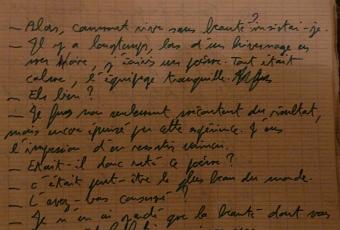 — Alors, comment vivre sans beauté ? insistai-je.
— Il y a longtemps, lors d'un hivernage en
mer Noire, j'avais un poisson. Tout était
calme, l'équipage tranquille.
— Eh bien ?
— Je fus non seulement mécontent du résultat,
mais encore épuisé par cette expérience. J'eus
l'impression d'en ressortir vaincu.
— Etait-il donc raté ce poisson ?
— C'était peut-être le plus beau du monde.
— L'avez-vous conservé ?
— Je n'en ai gardé que la beauté dont vous